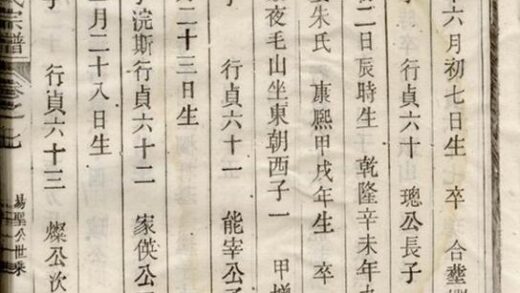 六月初七日生 卒 合塟
行貞六十 璁公長子
二日辰時生 乾隆辛未年
朱氏 康熈甲戌年生 卒
夜毛山坐東朝西子一 甲
行貞六十一 能宰公子
二十三日生
浣斯行貞六十二 家公
月二十八日生
行貞六十三 燦公次
氏宗譜 卷之七 易聖公世系